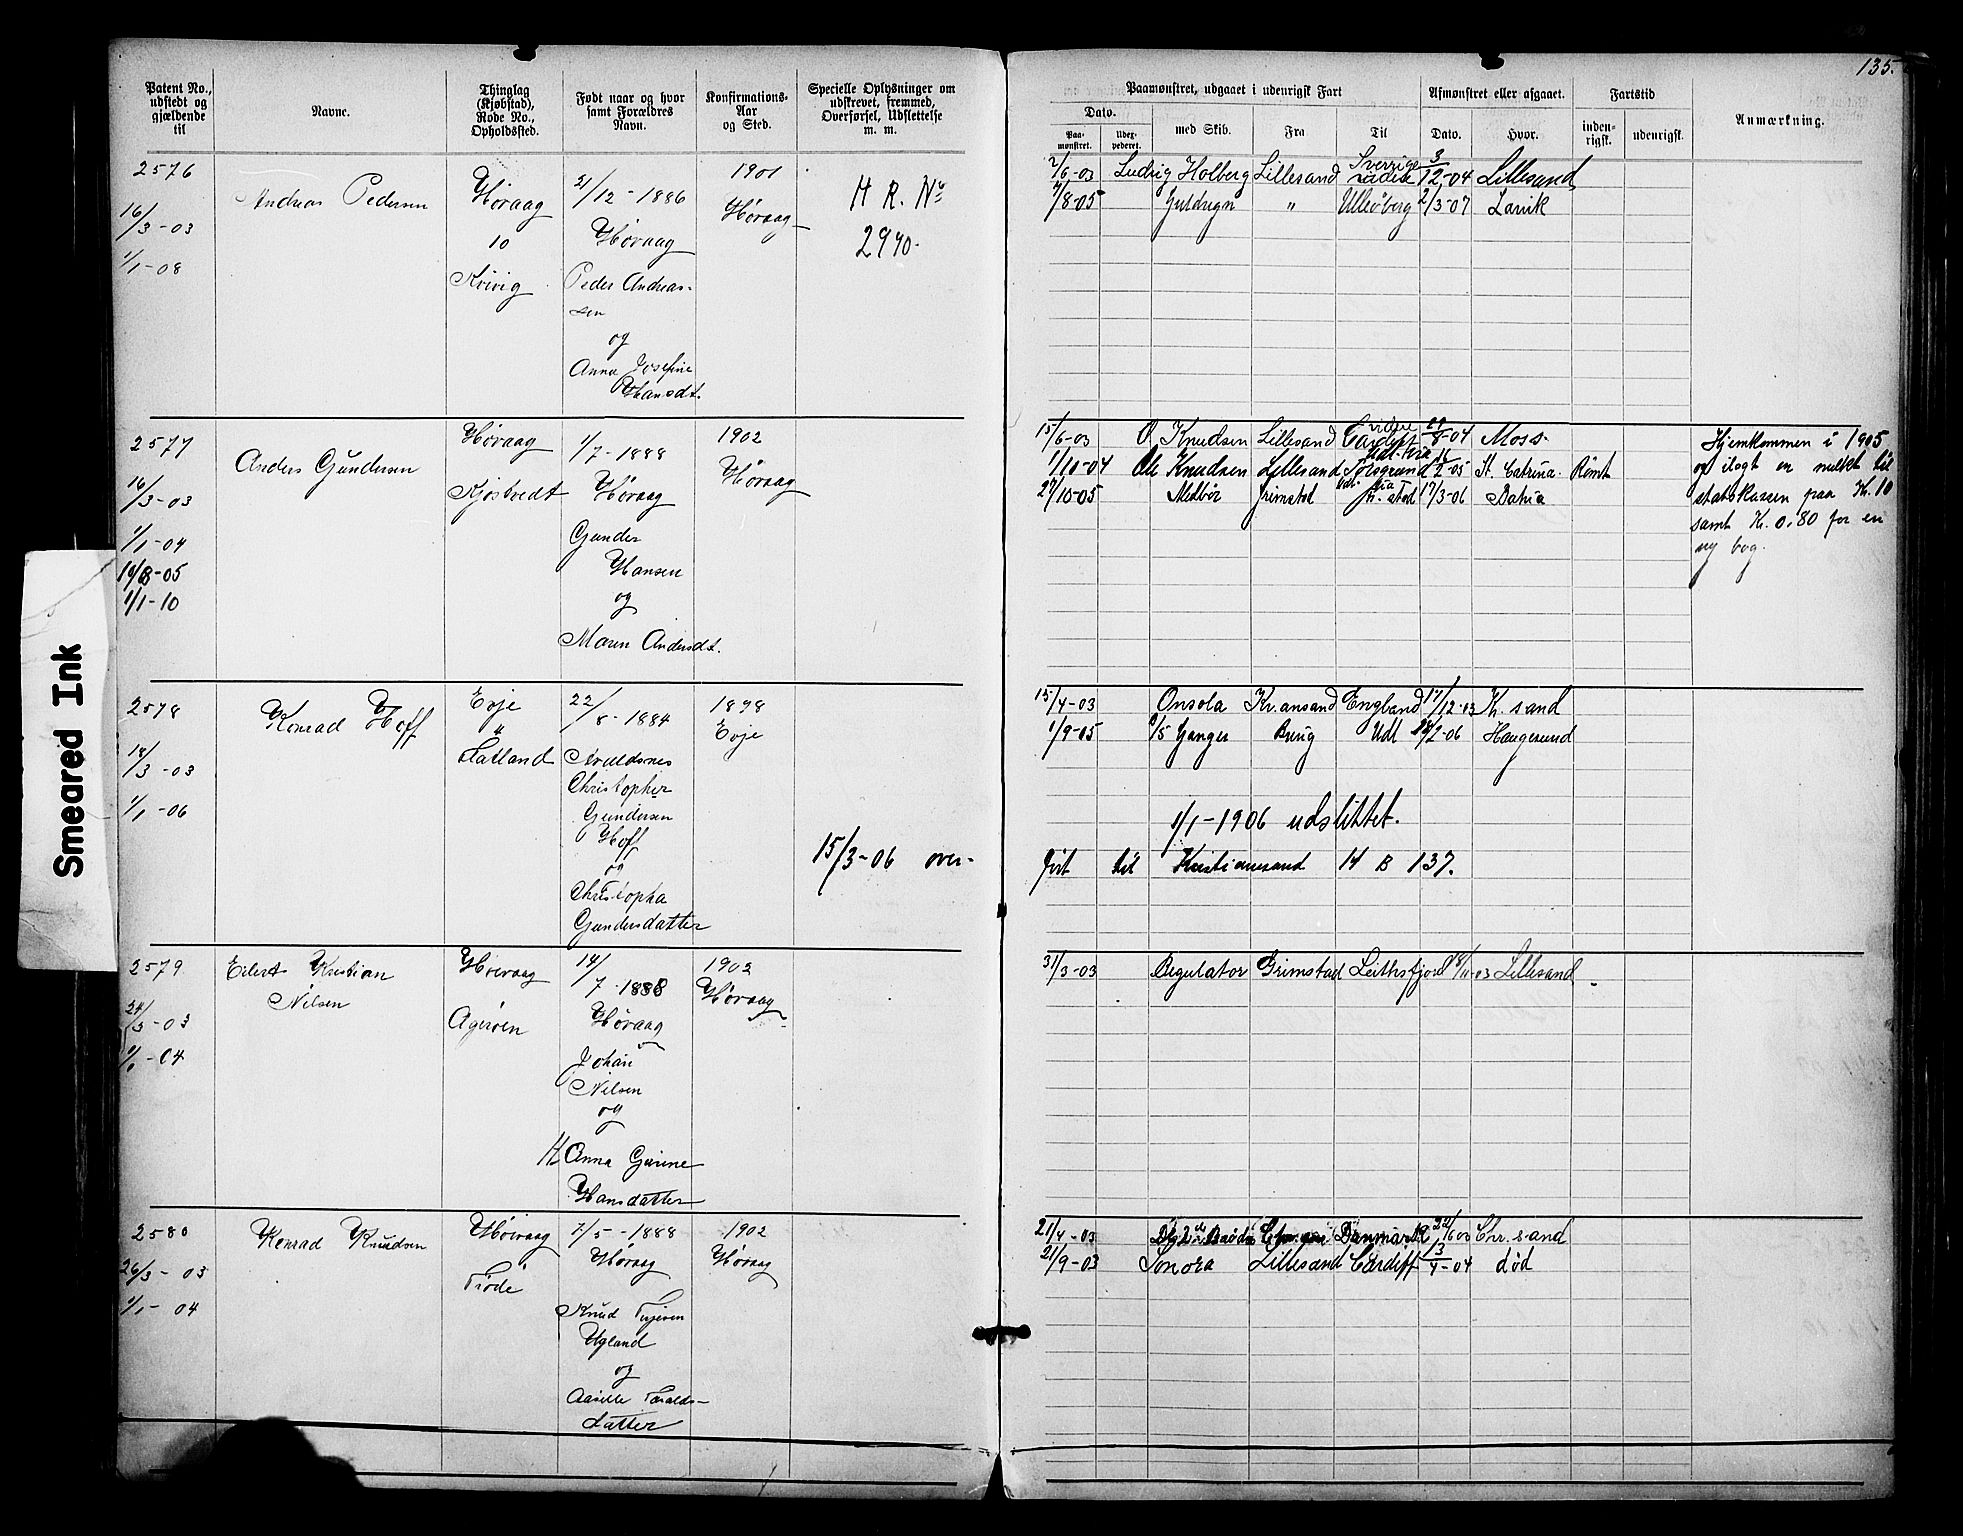 135.
Patent No., udstedt og gjældende til
Navne.
Thinglag (Kjøbstad), Rode No., Opholdssted.
Født naar og hvor samt Forældres Navn.
Konfirmations-Aar og Sted.
Specielle Oplysninger om udskrevet, fremmed, Overførsel, Udslettelse m. m.
Paamønstret, udgaaet i udenrigsk Fart
Dato.
Paa-mønstret.
Udez-pederet.
med Skib.
Fra
Til
Afmønstret eller afgaaet.
Dato.
Hvor.
Fartstid
inden-rigsk.
udenrigsk.
Anmærkning.
2576
16/3-03
1/1-08
Andreas Pedersen
Høvaag
10
Kvivig
31/12-1886
Høvaag
Peder Andreas-
sen
og
Anna Josefine
Hansdt.
1901
Høvaag
H R. No
2940.
2/6-03 Ludvig Holberg Lillesand Sverrige 3/12-04 Lillesand
7/8-05 Guldregn " 2/3-07 Larvik
2577
16/3-03
1/1-04
1/1-10
Anders Gundersen
Høvaag
Kjøstvedt
1/7-1888
Høvaag
Gunder
Hansen
og
Maren Andersdt.
1902
Høvaag
15/6-03 O. Knudsen Lillesand Cardiff 8-04 Moss.
1/10-04 Ole Knudsen Lillesand 2-05 St. Catrina. Rømt
27/10-05 Medbør Grimstad 17/3-06 Batria
Hjemkommen i 1905
og ilagt en mulkt til
statskassen paa Kr. 10
samt Kr. 0.80 for en
ny bog.
2578
18/3-03
1/1-06
Konrad Hoff
Evje
"
Flatland
22/8-1884
Christopher
Gundersen
Hoff
og
Christopha
Gundersdatter
1898
Evje
15/3-06 over-
15/4-03 Onsola Kr.ansand England 17/12-03 Kr. sand
1/9-05 Ganger Udl 2-06 Haugesund
1/1-1906 udslittet.
ført til Kristiansand 14 B 137.
2579
24/3-03
1/1-04
Eilert Kristian
Nilsen
Høivaag
Agerøen
14/7-1888
Høvaag
Johan
Nilsen
og
Anna Gurine
Hansdatter
1902
Høvaag
31/3-03 Regulator Grimstad Leithsfjord 11-03 Lillesand
2580
26/3-03
1/1-04
Konrad Knudsen
Høivaag
Trøde
7/5-1888
Høvaag
Knud Terjesen
Ugland
og
Aaselle Taralds-
datter
1902
Høvaag
21/4-03 Danmark Chr. sand
21/9-03 Sonora Lillesand Cardiff 3/4-04 død
Smeared Ink